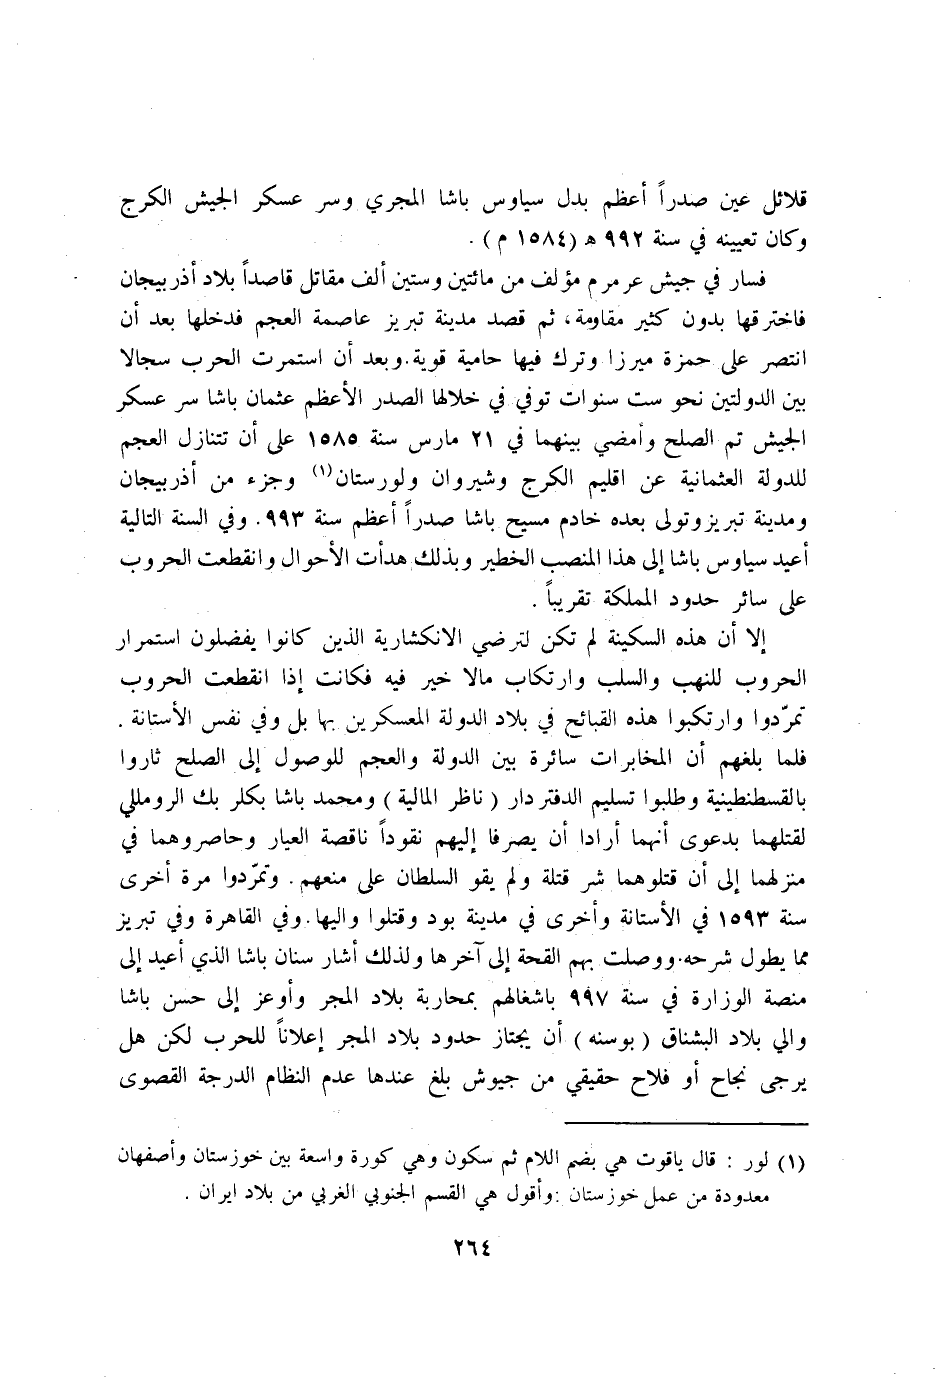 قلائل عين صدراً أعظم بدل سياوس باشا المجري وسر عسكر الجيش الكرج
وكان تعيينه في سنة ٩٩٢ هـ (١٥٨٤ م) .
فسار في جيش عرمرم مؤلف من مائتين وستين ألف مقاتل قاصداً بلاد أذربيجان
فاخترقها بدون كثير مقاومة، ثم قصد مدينة تبريز عاصمة العجم فدخلها بعد أن
انتصر على حمزة ميرزا وترك فيها حامية قوية.وبعد أن استمرت الحرب سجالا
بين الدولتين نحو ست سنوات توفي في خلالها الصدر الأعظم عثمان باشا سر عسكر
الجيش تم الصلح وأمضي بينهما في ٢١ مارس سنة ١٥٨٥ على أن تتنازل العجم
للدولة العثمانية عن اقليم الكرج وشيروان ولورستان(١) وجزء من أذربيجان
ومدينة تبريز وتولى بعده خادم مسيح باشا صدراً أعظم سنة ٩٩٣. وفي السنة التالية
أعيد سياوس باشا إلى هذا المنصب الخطير وبذلك هدأت الأحوال وانقطعت الحروب
على سائر حدود المملكة تقريباً .
إلا أن هذه السكينة لم تكن لترضي الانكشارية الذين كانوا يفضلون استمرار
الحروب للنهب والسلب وارتكاب مالا خير فيه فكانت إذا انقطعت الحروب
تمرّدوا وارتكبوا هذه القبائح في بلاد الدولة المعسكرين بها بل وفي نفس الأستانة .
فلما بلغهم أن المخابرات سائرة بين الدولة والعجم للوصول إلى الصلح ثاروا
بالقسطنطينية وطلبوا تسليم الدفتردار ( ناظر المالية ) ومحمد باشا بكلر بك الروملي
لقتلهما بدعوى أنهما أرادا أن يصرفا إليهم نقوداً ناقصة العيار وحاصروهما في
منزلهما إلى أن قتلوهما شر قتلة ولم يقو السلطان على منعهم. وتمرّدوا مرة أخرى
سنة ١٥٩٣ في الأستانة وأخرى في مدينة بود وقتلوا واليها.وفي القاهرة وفي تبريز
مما يطول شرحه.ووصلت بهم القحة إلى آخرها ولذلك أشار سنان باشا الذي أعيد إلى
منصة الوزارة في سنة ٩٩٧ باشغالهم بمحاربة بلاد المجر وأوعز إلى حسن باشا
والي بلاد البشناق ( بوسنه ) أن يجتاز حدود بلاد المجر إعلاناً للحرب لكن هل
يرجى نجاح أو فلاح حقيقي من جيوش بلغ عندها عدم النظام الدرجة القصوى
(١) لور : قال ياقوت هي بضم اللام ثم سكون وهي كورة واسعة بين خوزستان وأصفهان
معدودة من عمل خوزستان :وأقول هي القسم الجنوبي الغربي من بلاد ايران .
٢٦٤